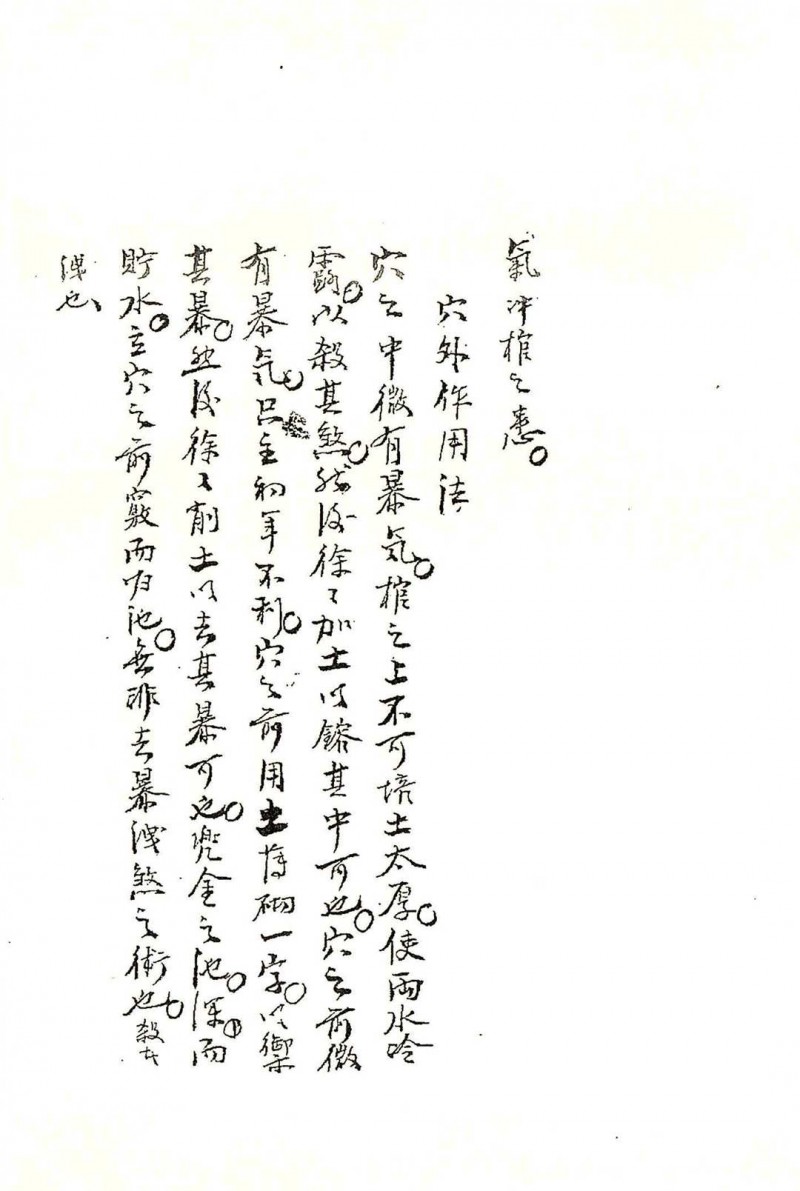 氣冲棺之患。
穴外作用法
穴之中微有暴気。棺之上不可培土太厚。使雨水唅
露。以殺其煞。然後徐々加土以鎔其中可也。穴之前微
有暴気。只主初年不利。穴之前用土塼砌一字。以禦
其暴。然後徐々削土以去其暴可也。兜金之池。深而
貯水。立穴之前竅而归池。無非去暴洩煞之術也。殺大
洩也、